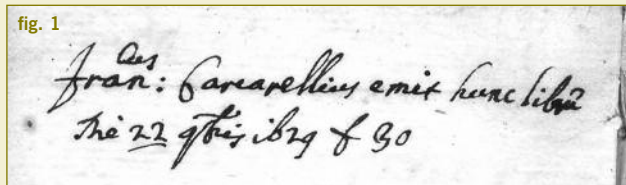 fig. 1
Fran:cus Carcarellius emit hunc librū
die 22 9bris 1629 f 30